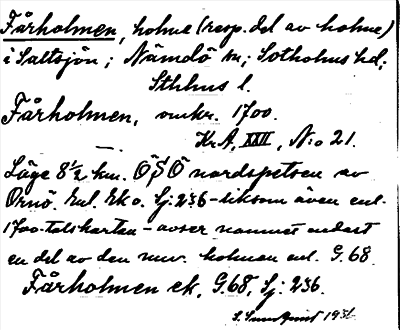 Fårholmen, holme (resp. del av holme)
i Saltsjön; Nämdö sn; Sotholms hd;
Sthlms l.
Fårholmen, omkr. 1700.
Kr.A, XXII, N:o 21.
Läge 8 1/2 km. ÖSÖ nordspetsen av
Ornö. Enl. Ek o. Sj: 236 - liksom även enl.
1700-talskartan - avser namnet endast
en del av den nuv. holmen enl. G.68.
Fårholmen ek. G.68, Sj: 236.
Sundqvist 1936